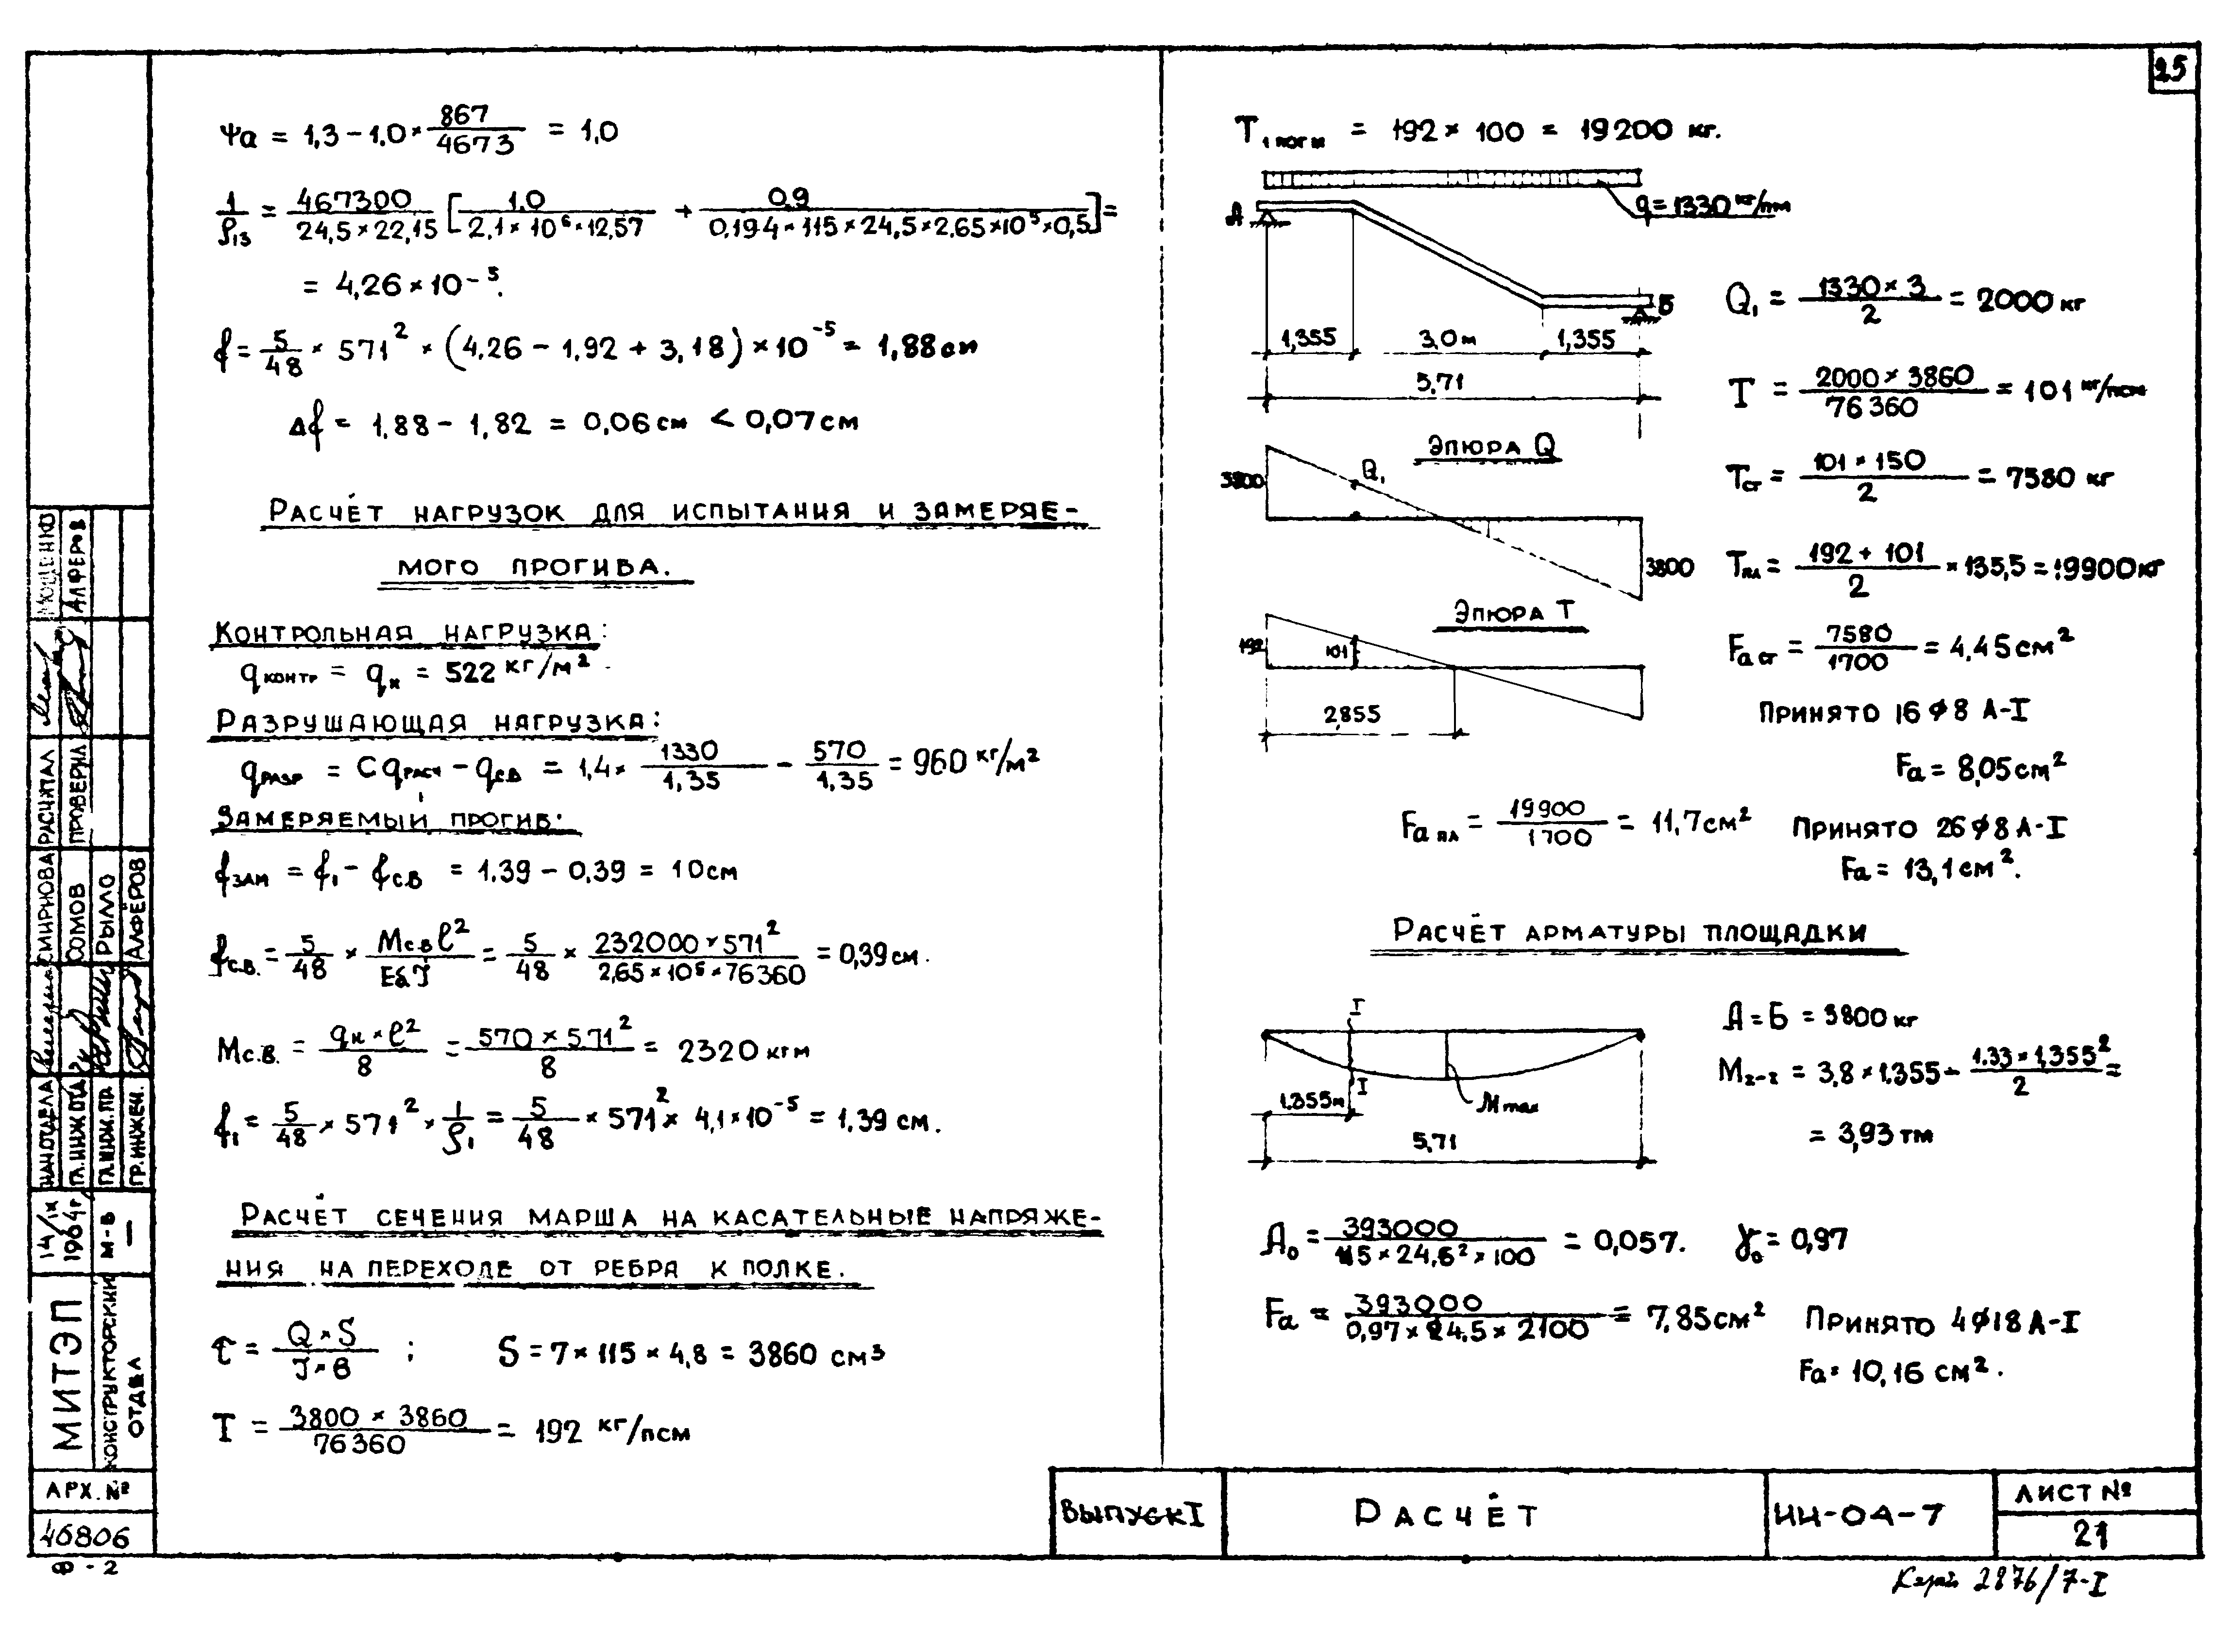 25
Ψa = 1,3 - 1,0 × 867/4673 = 1,0
1/ρ13 = 467300/(24,5 × 22,15) [1,0/(2,1 × 10⁶ × 12,57) + 0,9/(0,194 × 115 × 24,5 × 2,65 × 10⁵ × 0,5)] =
= 4,26 × 10⁻⁵.
f = 5/48 × 571² × (4,26 - 1,92 + 3,18) × 10⁻⁵ = 1,88 см
Δf = 1,88 - 1,82 = 0,06 см < 0,07 см
РАСЧЁТ НАГРУЗОК ДЛЯ ИСПЫТАНИЯ И ЗАМЕРЯЕ-
МОГО ПРОГИБА.
КОНТРОЛЬНАЯ НАГРУЗКА:
qконтр = qн = 522 кг/м²
РАЗРУШАЮЩАЯ НАГРУЗКА:
qразр = Cqрасч - qсв = 1,4 × 1330/1,35 - 570/1,35 = 960 кг/м²
ЗАМЕРЯЕМЫЙ ПРОГИБ:
fзам = f₁ - fс.в = 1.39 - 0,39 = 10 см
fс.в. = 5/48 × Mс.в l²/EбJ = 5/48 × 232000 × 571²/(2,65 × 10⁵ × 76360) = 0,39 см.
Mс.в. = qн × l²/8 = 570 × 5.71²/8 = 2320 кгм
f₁ = 5/48 × 571² × 1/ρ₁ = 5/48 × 571² × 4,1 × 10⁻⁵ = 1,39 см.
РАСЧЁТ СЕЧЕНИЯ МАРША НА КАСАТЕЛЬНЫЕ НАПРЯЖЕ-
НИЯ НА ПЕРЕХОДЕ ОТ РЕБРА К ПОЛКЕ.
τ = Q × S/J × в ; S = 7 × 115 × 4,8 = 3860 см³
T = 3800 × 3860/76360 = 192 кг/псм
T1 пог м = 192 × 100 = 19200 кг.
q = 1330 кг/пм
А
Б
1,355 3,0 м 1,355
5,71
Q₁ = 1330 × 3/2 = 2000 кг
T = 2000 × 3860/76360 = 101 кг/псм
ЭПЮРА Q
3800 Q₁
3800
Tст = 101 × 150/2 = 7580 кг
Tпл = (192 + 101)/2 × 135,5 = 19900 кг
ЭПЮРА T
192 101
2,855
Fа ст = 7580/1700 = 4,45 см²
ПРИНЯТО 16 ϕ 8 А-I
Fа = 8,05 см²
Fа пл = 19900/1700 = 11,7 см² ПРИНЯТО 26 ϕ 8 А-I
Fа = 13,1 см².
РАСЧЁТ АРМАТУРЫ ПЛОЩАДКИ
I
I
1.355 м Mmax
5,71
А = Б = 3800 кг
MI-I = 3,8 × 1.355 - 1.33 × 1,355²/2 =
= 3,93 тм
A₀ = 393000/(115 × 24,5² × 100) = 0,057. γ₀ = 0,97
Fа = 393000/(0,97 × 24,5 × 2100) = 7,85 см² ПРИНЯТО 4 ϕ 18 А-I
Fа = 10,16 см².
МОЩЕНКО
АЛФЕРОВ
РАСЧИТАЛ
ПРОВЕРИЛ
СМИРНОВА
СОМОВ
РЫЛЛО
АЛФЁРОВ
НАЧ ОТДЕЛА
ГЛ.ИНЖ ОТД
ГЛ.ИНЖ.ПР.
ГР.ИНЖЕН.
14/IX
1964г
М-Б
МИТЭП
КОНСТРУКТОРСКИЙ
ОТДЕЛ
АРХ. №
46806
Ф-2
ВЫПУСК I
РАСЧЁТ
ИИ-04-7
ЛИСТ №
21
2876/7-I